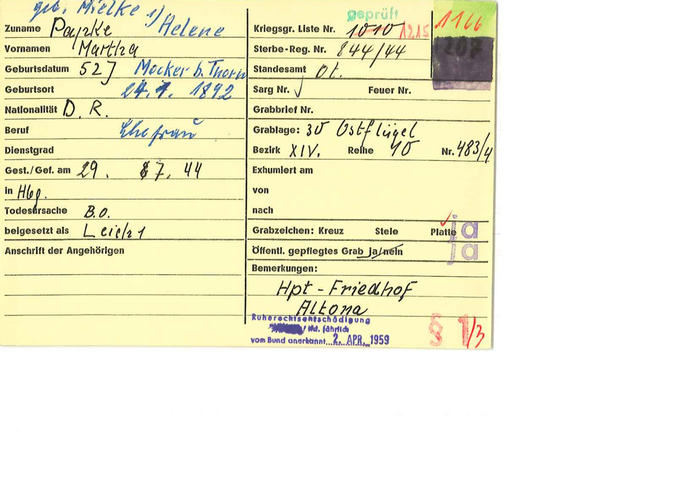 geb. Mielke 1)
Zuname Papke Helene
Vornamen Martha
Geburtsdatum 52J Mocker b. Thorn
Geburtsort 24.1. 1892
Nationalität D. R.
Beruf Ehefrau
Dienstgrad
Gest./Gef. am 29. 7. 44
in Hbg.
Todesursache B.O.
beigesetzt als Leiche 1
Anschrift der Angehörigen
geprüft
Kriegsgr. Liste Nr. 1010 1215
1166
Sterbe-Reg. Nr. 844/44
1207
Standesamt Ot.
Sarg Nr. Feuer Nr.
Grabbrief Nr.
Grablage: 30 Ostflügel
Bezirk XIV. Reihe 10 Nr. 483/4
Exhumiert am
von
nach
Grabzeichen: Kreuz Stele Platte ja
Öffentl. gepflegtes Grab ja/nein ja
Bemerkungen:
Hpt-Friedhof
Altona
Ruherechtsentschädigung
/ lfd. jährlich
vom Bund anerkannt 2. APR. 1959
§ 1/3